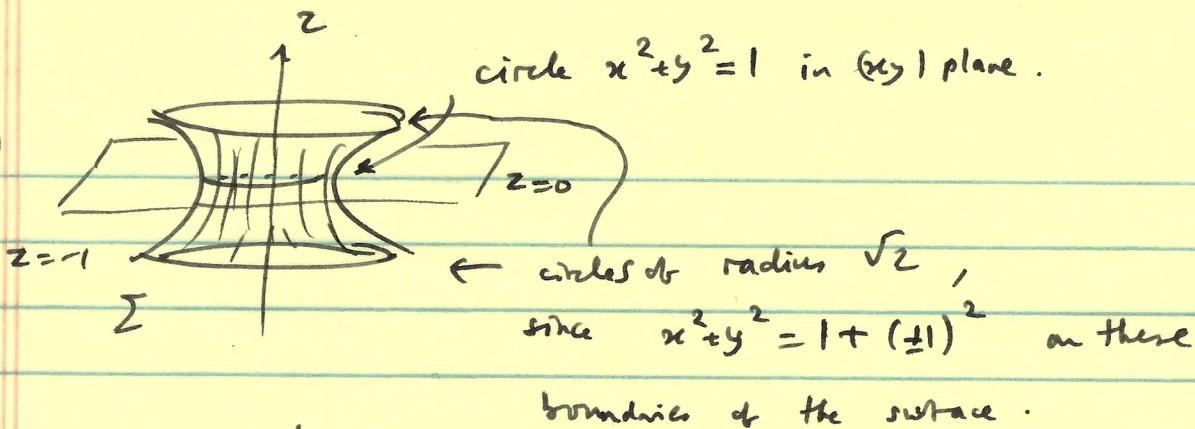 z
circle x²+y²=1 in (xy) plane.
z=0
z=-1
Σ
← circles of radius √2,
since x²+y² = 1 + (±1)² on these
boundaries of the surface.